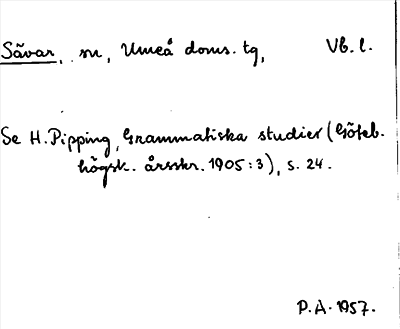 Sävar, sn, Umeå doms. tg, Vb. l.
Se H. Pipping, Grammatiska studier (Göteb.
högsk. årsskr. 1905:3), s. 24.
P.A. 1957.